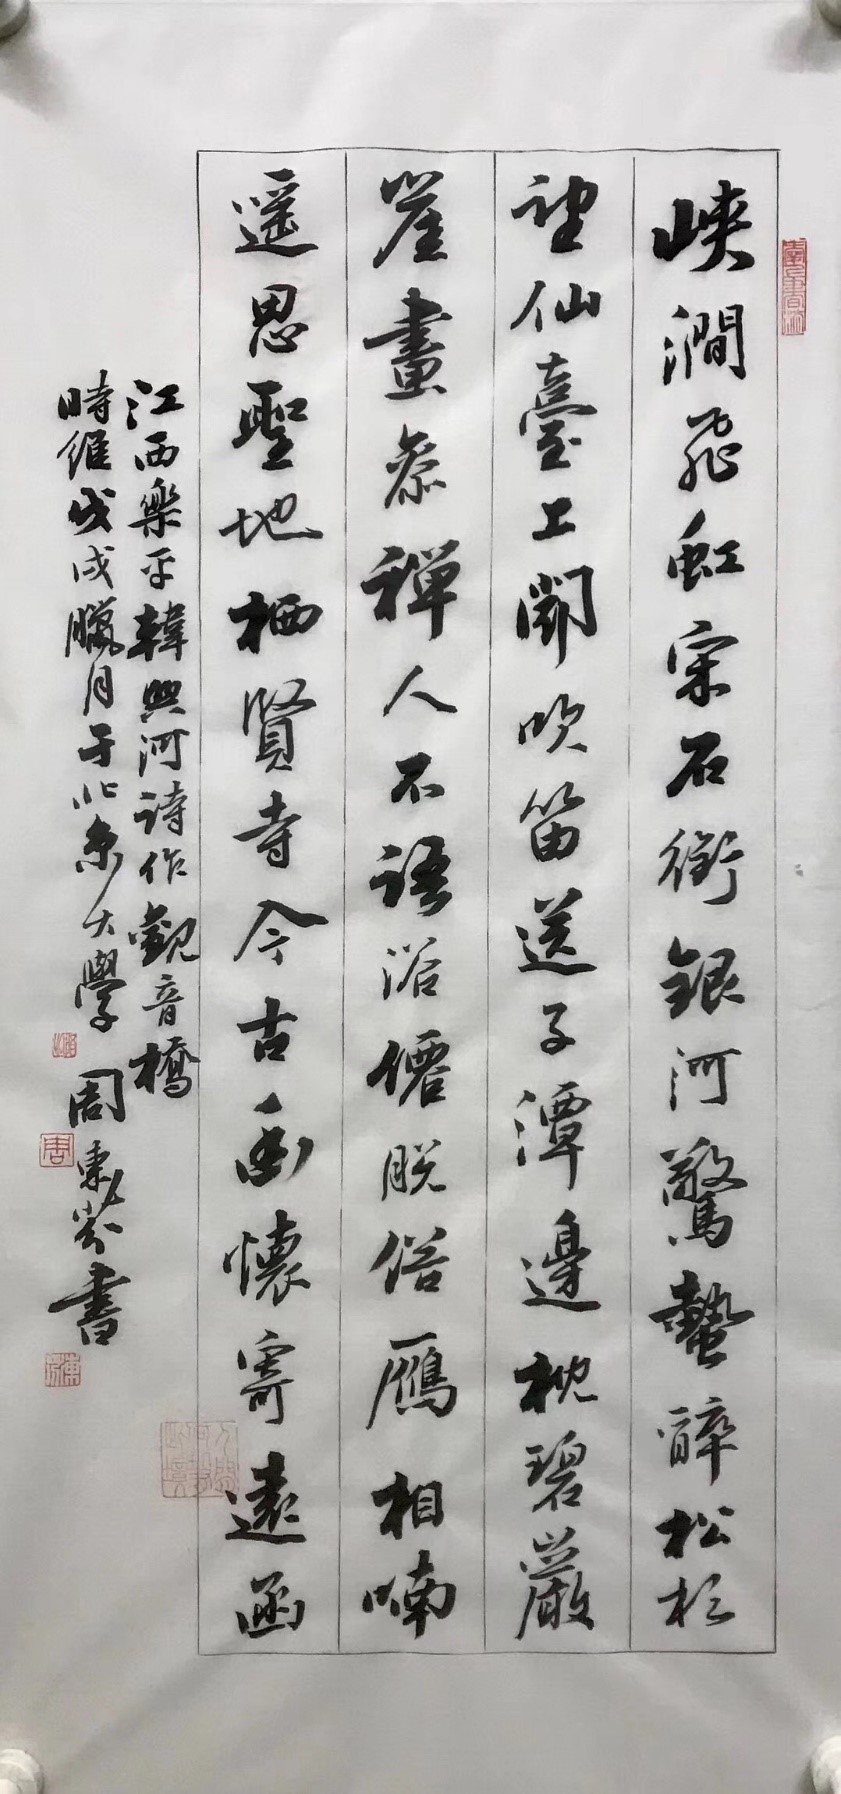 峽澗飛虹宋石銜銀河驚蟄醉松杉
望仙臺上聞吹笛送子潭邊枕碧巖
崖畫參禪人不語浴僊脱俗雁相喃
遥思聖地栖賢寺今古幽懷寄遠函
江西樂平韓興河詩作觀音橋
時維戊戌臘月于北京大學 周東芬書